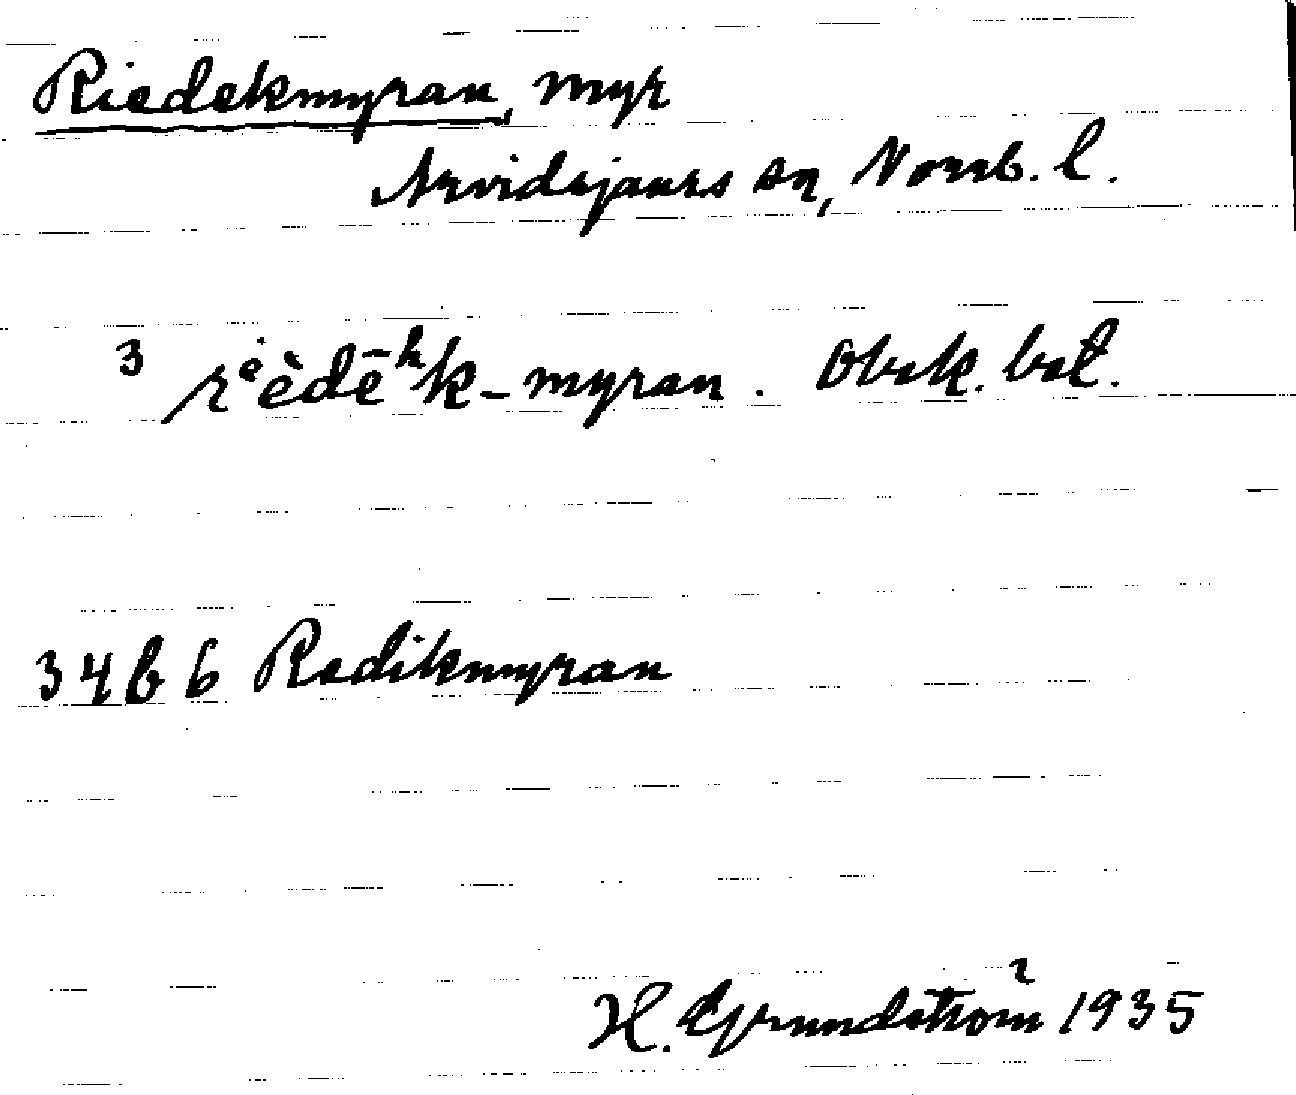 Riedekmyran, myr
Arvidsjaurs sn, Norrb. l.
3 rėèdēʰk-myran. Obek. bet.
34 b 6 Redikmyran
H. Grundström 1935